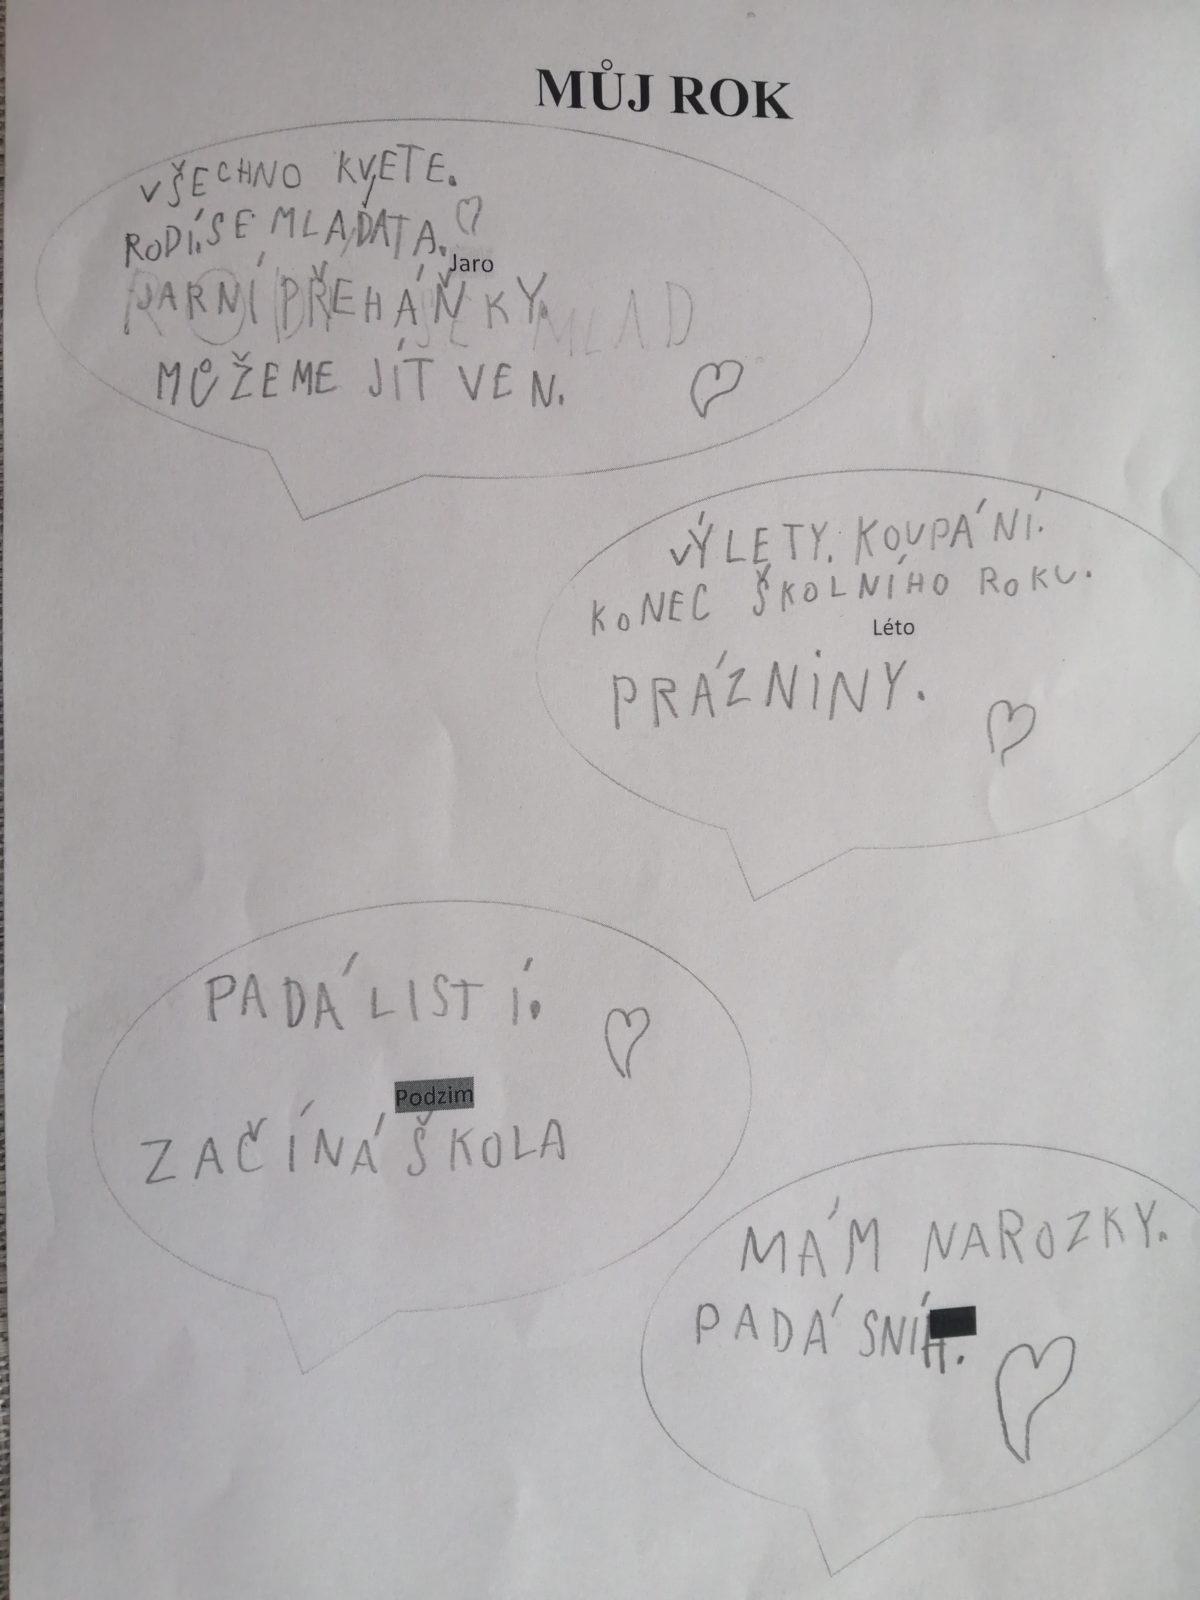 MŮJ ROK
VŠECHNO KVETE.
RODÍ SE MLAĎATA.
Jaro
JARNÍ PŘEHÁŇKY.
MŮŽEME JÍT VEN.
VÝLETY. KOUPÁNÍ.
KONEC ŠKOLNÍHO ROKU.
Léto
PRÁZNINY.
PADÁ LISTÍ.
Podzim
ZAČÍNÁ ŠKOLA
MÁM NAROZKY.
PADÁ SNÍH.